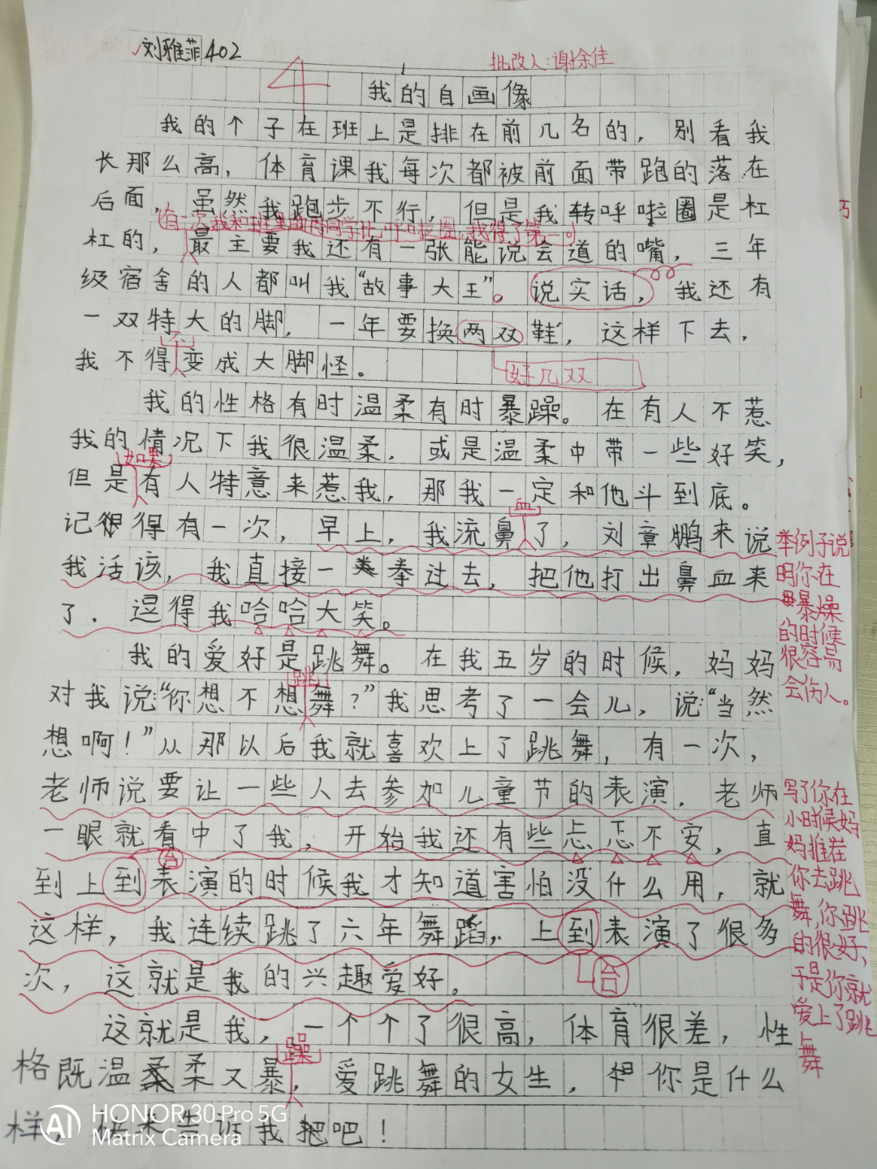 刘雅菲402
批改人:谢余佳
4
我的自画像
我的个子在班上是排在前几名的，别看我
长那么高，体育课我每次都被前面带跑的落在
后面，虽然我跑步不行，但是我转呼啦圈是杠
有一次我和班里的同学比呼啦圈，我得了第一
杠的，最主要我还有一张能说会道的嘴，三年
级宿舍的人都叫我“故事大王”。说实话，我还有
一双特大的脚，一年要换两双鞋，这样下去，
我不得变成大脚怪。
不
好几双
我的性格有时温柔有时暴躁。在有人不惹
我的情况下我很温柔，或是温柔中带一些好笑，
如果
但是有人特意来惹我，那我一定和他斗到底。
血
记得有一次，早上，我流鼻了，刘章鹏来说
我活该，我直接一拳过去，把他打出鼻血来
了．逗得我哈哈大笑。
举例子说
明你在
暴燥
的时候
很容易
会伤人。
我的爱好是跳舞。在我五岁的时候，妈妈
跳
对我说“你想不想舞？”我思考了一会儿，说：“当然
想啊！”从那以后我就喜欢上了跳舞，有一次，
老师说要让一些人去参加儿童节的表演．老师
一眼就看中了我，开始我还有些忐忑不安，直
台
到上到表演的时候我才知道害怕没什么用，就
这样，我连续跳了六年舞蹈，上到表演了很多
台
次，这就是我的兴趣爱好。
写了你在
小时候妈
妈推荐
你去跳
舞，你跳
的很好，
于是你就
爱上了跳
舞
这就是我，一个个了很高，体育很差，性
躁
格既温柔又暴，爱跳舞的女生，你是什么
样，快来告诉我吧！
AI
HONOR 30 Pro 5G
Matrix Camera